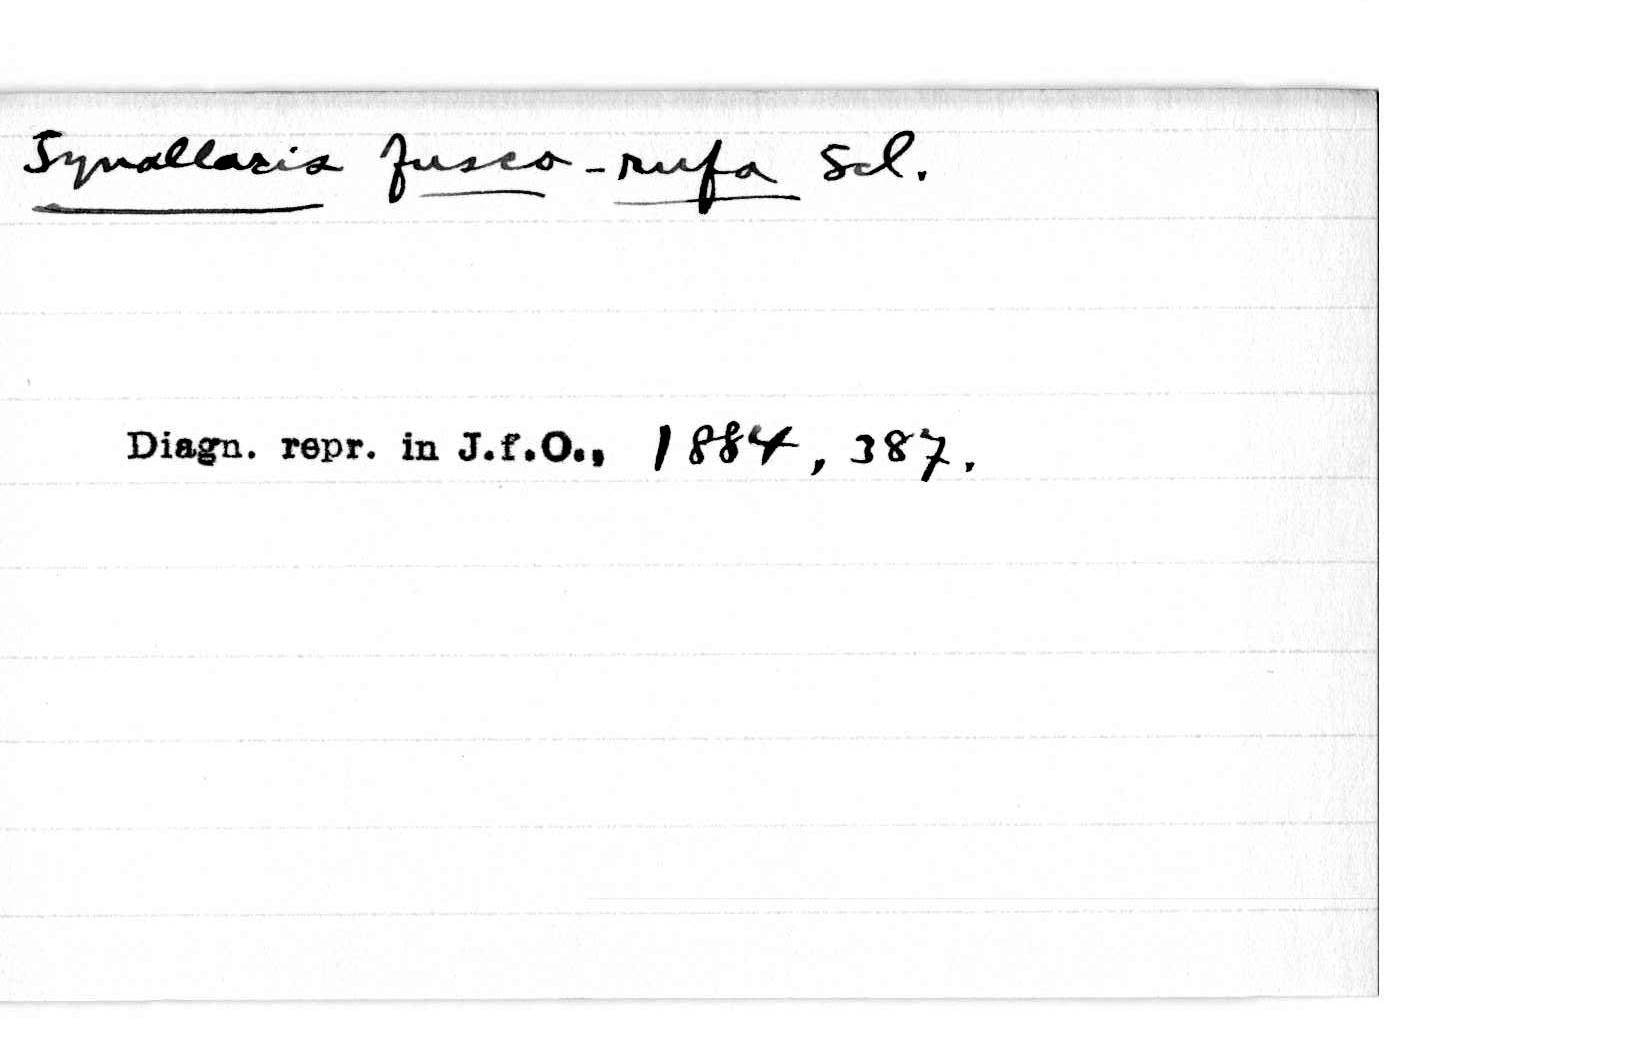 Synallaxis fusco-rufa Scl.
Diagn. repr. in J.f.O., 1884, 387.